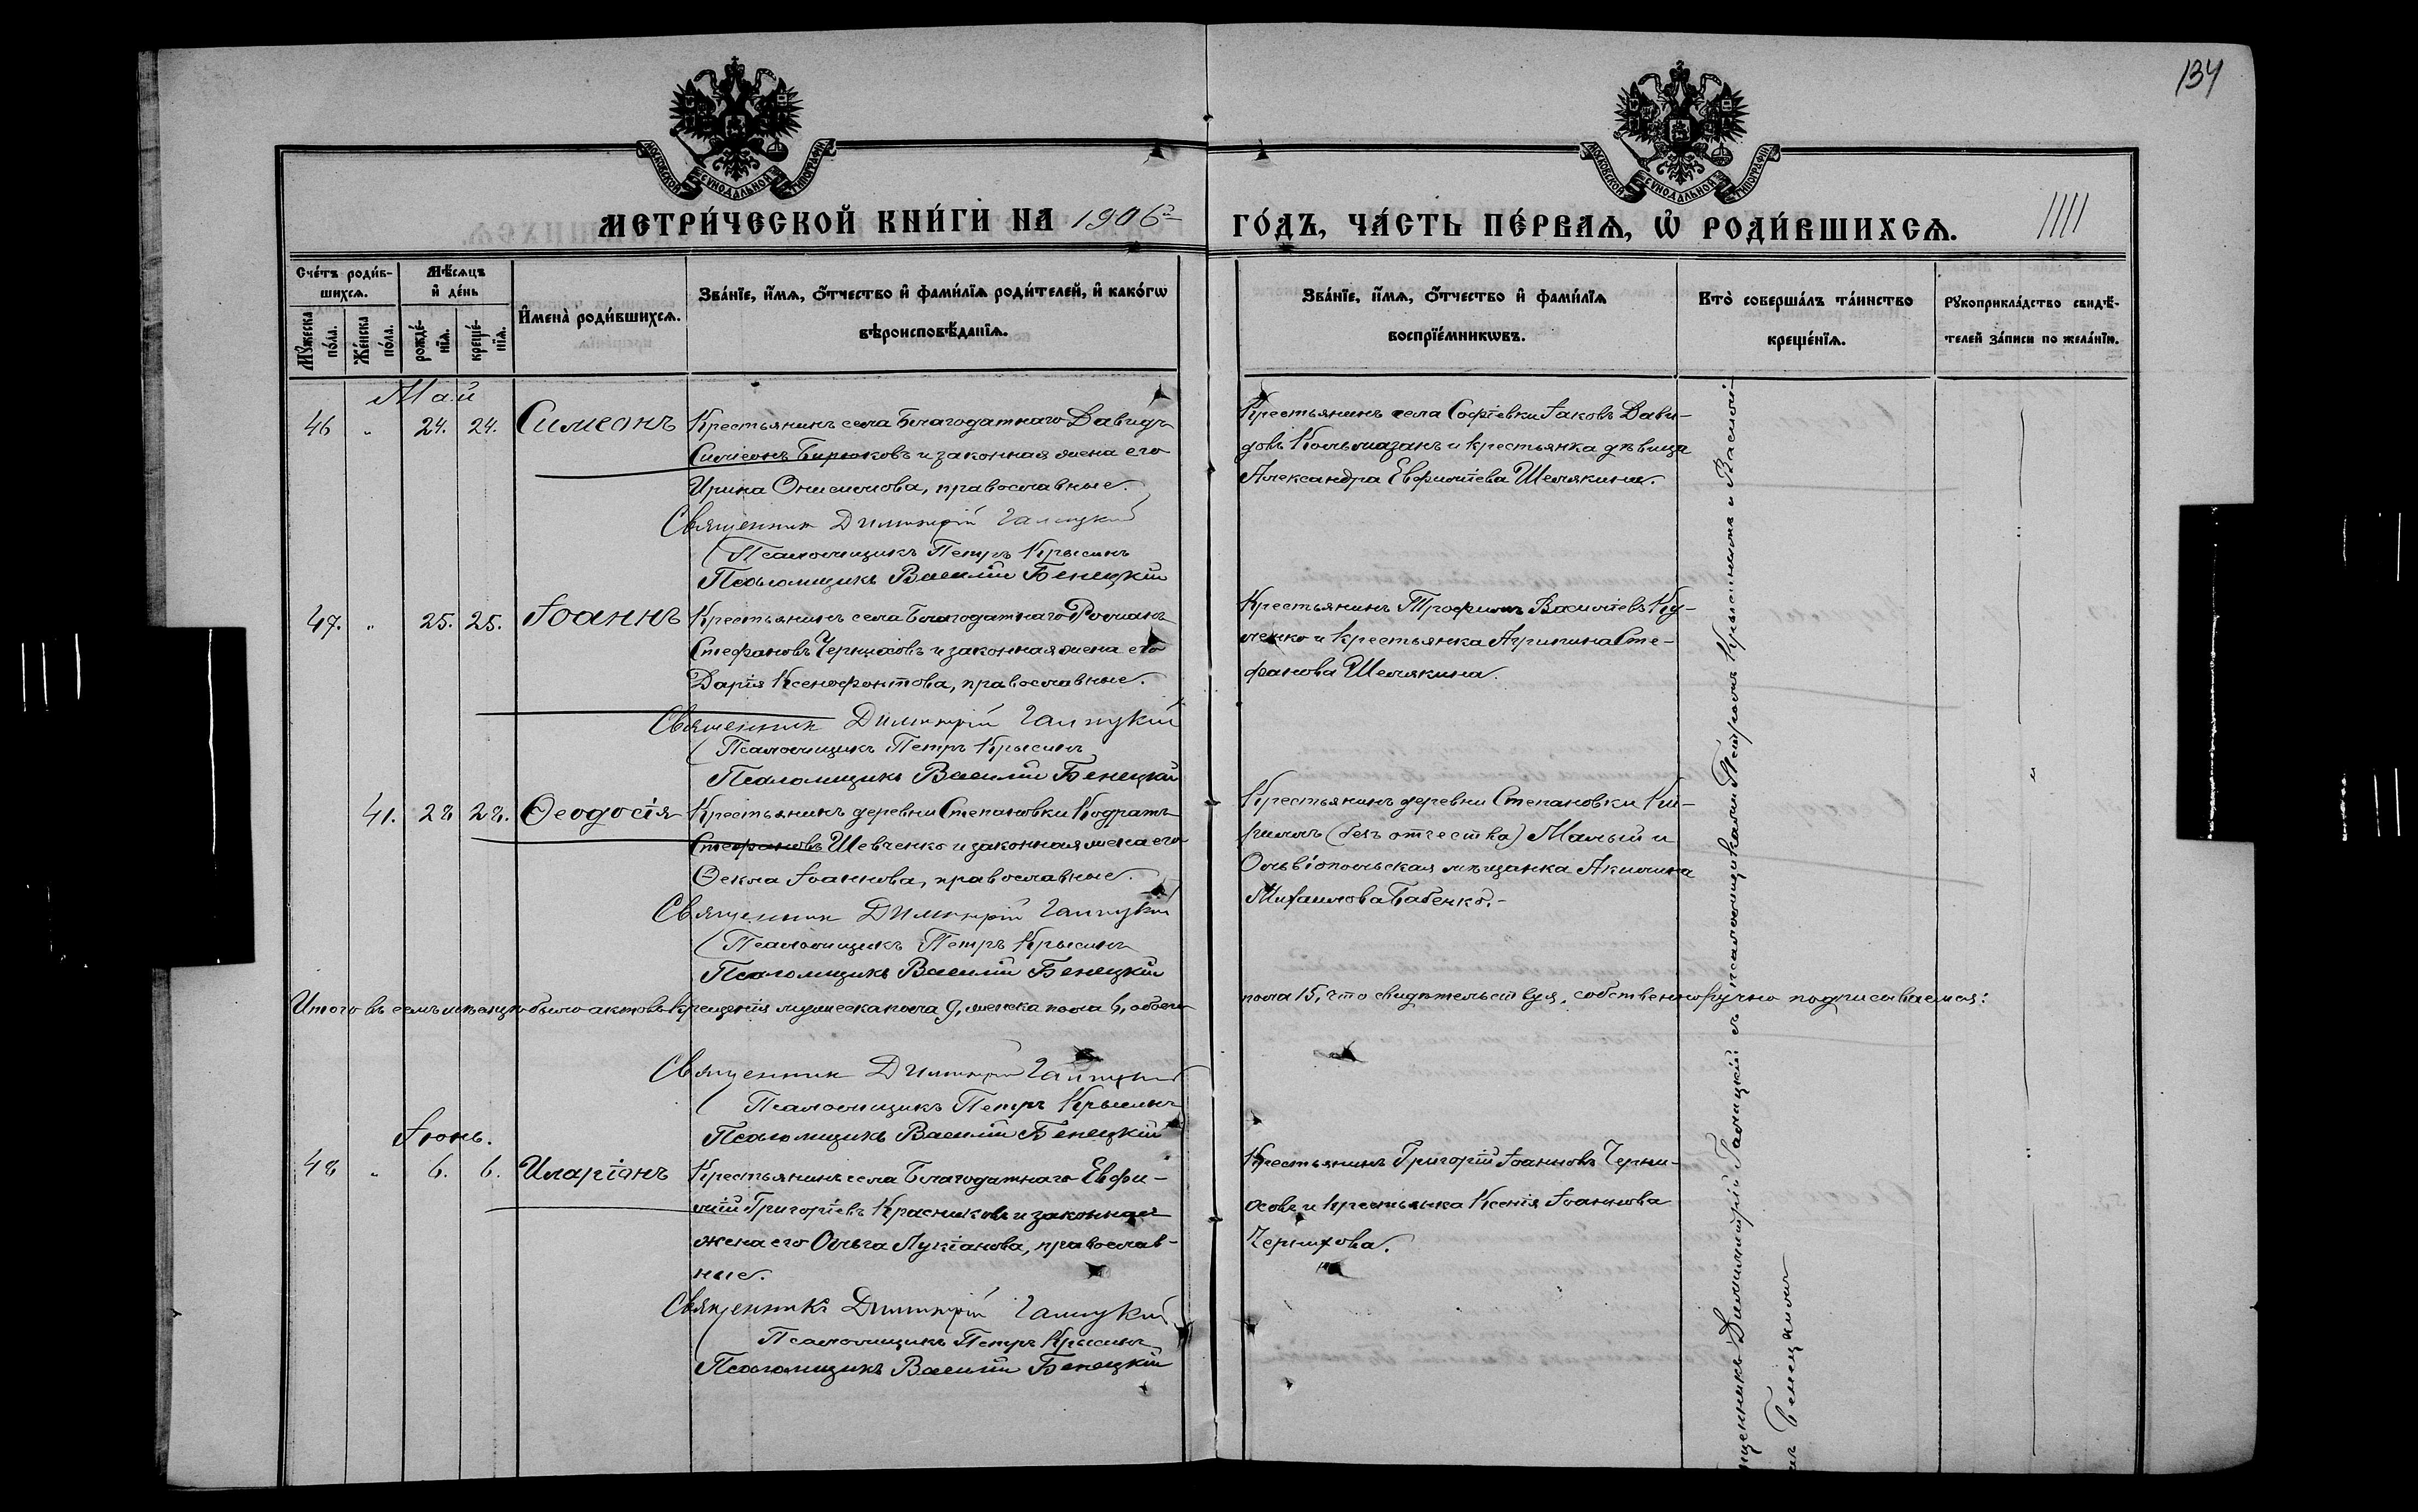 134
МОСКОВСКОЙ СУНОДАЛЬНОЙ ТИПОГРАФІИ
МОСКОВСКОЙ СУНОДАЛЬНОЙ ТИПОГРАФІИ
МЕТРИ́ЧЕСКОЙ КНИ́ГИ НА 1906 г.
ГО́ДЪ, ЧА́СТЬ ПЕ́РВАѦ, Ѡ҆ РОДИ́ВШИХСѦ.
Сче́тъ роди́в-
шихсѧ.
Мѣ́сѧцъ
и҆ де́нь
И҆мена̀ роди́вшихсѧ.
Зва́нїе, и҆́мѧ, ѻ҆́тчество и҆ фами́лїѧ роди́телей, и҆ како́гѡ
вѣроисповѣ́данїѧ.
Мꙋ́жеска по́ла.
Же́нска по́ла.
рожде́-нїѧ.
креще́-нїѧ.
Зва́нїе, и҆́мѧ, ѻ҆́тчество и҆ фами́лїѧ
воспрїе́мникѡвъ.
Кто̀ соверша́лъ та́инство
креще́нїѧ.
Рꙋкоприкла́дство свидѣ́-
телей за́писи по жела́нїю.
Май
46 " 24. 24. Симеонъ Крестьянинъ села Благодатнаго Давидъ
Симеоновъ Бирюковъ и законная жена его
Ирина Онисимова, православные.
Священник Димитрій Галицкий
Псаломщикъ Петръ Крысинъ
Псаломщикъ Василій Бенецкій
Крестьянинъ села Софіевки Іаковъ Дави-
довъ Кольмазанъ и крестьянка дѣвица
Александра Евфиміева Шемякина.
47. " 25. 25. Іоаннъ Крестьянинъ села Благодатнаго Романъ
Стефановъ Черниѳовъ и законная жена его
Дарія Ксенофонтова, православные.
Священник Димитрій Галицкий
Псаломщикъ Петръ Крысинъ
Псаломщикъ Василій Бенецкій
Крестьянинъ Трофимъ Василіевъ Ку-
ленко и крестьянка Агрипина Сте-
фанова Шемякина.
41. 28 28. Ѳеодосія Крестьянинъ деревни Степановки Кодратъ
Стефановъ Шевченко и законная жена его
Ѳекла Іоаннова, православные.
Священник Димитрій Галицкий
Псаломщикъ Петръ Крысинъ
Псаломщикъ Василій Бенецкій
Крестьянинъ деревни Степановки Ки-
риллъ (безъ отчества) Малый и
Ольвіопольская мѣщанка Акилина
Михаилова Бабенко.-
Итого въ семъ мѣсяцѣ было актовъ крещенія мужеска пола 9, женска пола 6, обоего
пола 15, что свидѣтельствуя, собственноручно подписываемся:
Священник Димитрій Галицкий
Псаломщикъ Петръ Крысинъ
Псаломщикъ Василій Бенецкій
Іюнь.
48 " 6. 6. Иларіонъ Крестьянинъ села Благодатнаго Евфи-
мій Григоріевъ Красниковъ и законная
жена его Ольга Лукіанова, православ-
ные.
Священникъ Димитрій Галицкий
Псаломщикъ Петръ Крысинъ
Псаломщикъ Василій Бенецкій
Крестьянинъ Григорій Іоанновъ Черни-
ѳовъ и крестьянка Ксенія Іоаннова
Чернихова.
Димитрій Галицкій съ псаломщиками Петромъ Крысинымъ и Василі-
Бенецкимъ